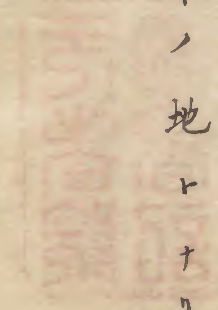 ノ地トナ